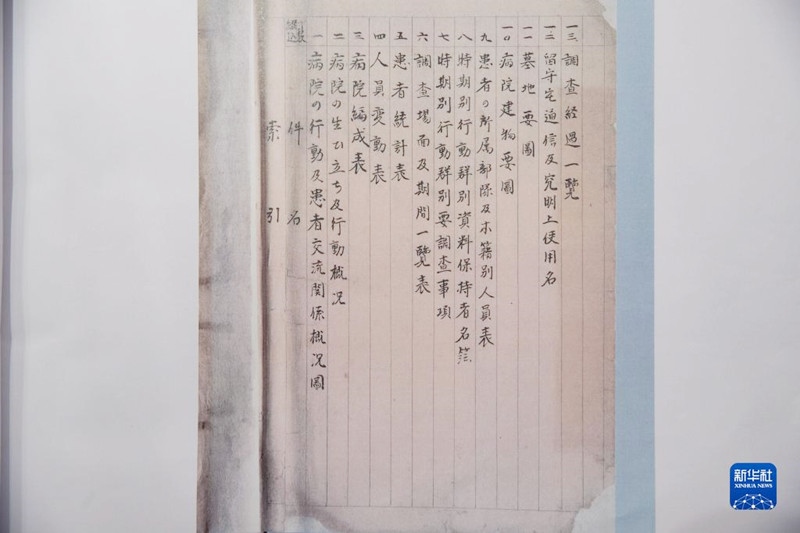 索引
件名
一 病院の行動及患者交流関係概況圖
二 病院の生ひ立ち及行動概況
三 病院編成表
四 人員変動表
五 患者統計表
六 調査場面及期間一覧表
七 時期別行動群別要調査事項
八 時期別行動群別資料保持者名簿
九 患者の所属部隊及本籍別人員表
一〇 病院建物要圖
一一 墓地要圖
一二 留守宅通信及究明上使用名
一三 調査経過一覧
新华社
XINHUA NEWS